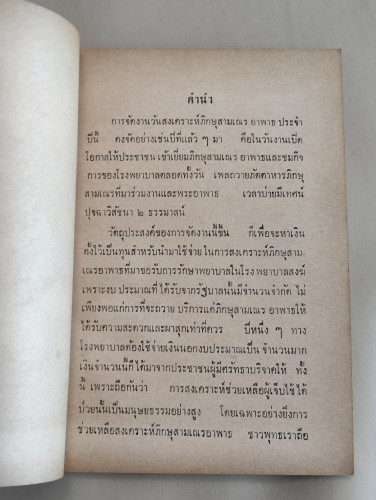 คำนำ
การจัดงานวันสงเคราะห์ภิกษุสามเณร อาพาธ ประจำ
ปีนี้ คงจัดอย่างเช่นปีที่แล้ว ๆ มา คือในวันงานเปิด
โอกาสให้ประชาชน เข้าเยี่ยมภิกษุสามเณร อาพาธและชมกิจ
การของโรงพยาบาลตลอดทั้งวัน เพลถวายภัตตาหารภิกษุ
สามเณรที่มาร่วมงานและพระอาพาธ เวลาบ่ายมีเทศน์
ปุจฉาวิสัชนา ๒ ธรรมาสน์
วัตถุประสงค์ของการจัดงานนี้ขึ้น ก็เพื่อจะหาเงิน
ตั้งไว้เป็นทุนสำหรับนำมาใช้จ่าย ในการสงเคราะห์ภิกษุสาม-
เณรอาพาธที่มาขอรับการรักษาพยาบาลในโรงพยาบาลสงฆ์
เพราะงบ ประมาณที่ ได้รับจากรัฐบาลนั้นมีจำนวนจำกัด ไม่
เพียงพอแก่การที่จะถวาย บริการแด่ภิกษุสามเณร อาพาธให้
ได้รับความสะดวกและผาสุกเท่าที่ควร ปีหนึ่ง ๆ ทาง
โรงพยาบาลต้องใช้จ่ายเงินนอกงบประมาณเป็น จำนวนมาก
เงินจำนวนนี้ก็ได้มาจากประชาชนผู้มีศรัทธาบริจาคให้ ทั้ง
นี้ เพราะถือกันว่า การสงเคราะห์ช่วยเหลือผู้เจ็บไข้ได้
ป่วยนั้นเป็นมนุษยธรรมอย่างสูง โดยเฉพาะอย่างยิ่งการ
ช่วยเหลือสงเคราะห์ภิกษุสามเณรอาพาธ ชาวพุทธเราถือ